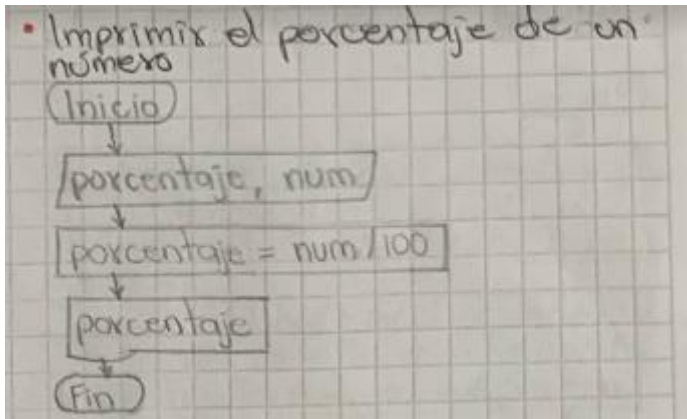 • Imprimir el porcentaje de un
número
Inicio
porcentaje, num
porcentaje = num/100
porcentaje
Fin